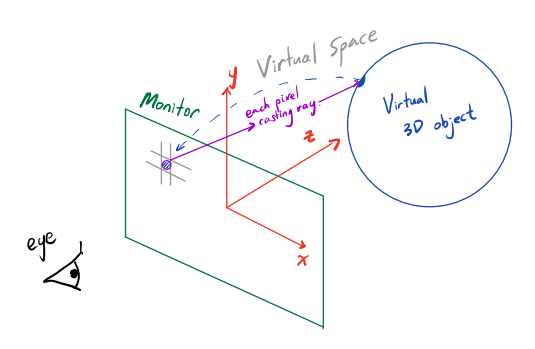 Virtual Space
y
Monitor
each pixel
casting ray
Virtual
3D object
z
eye
x